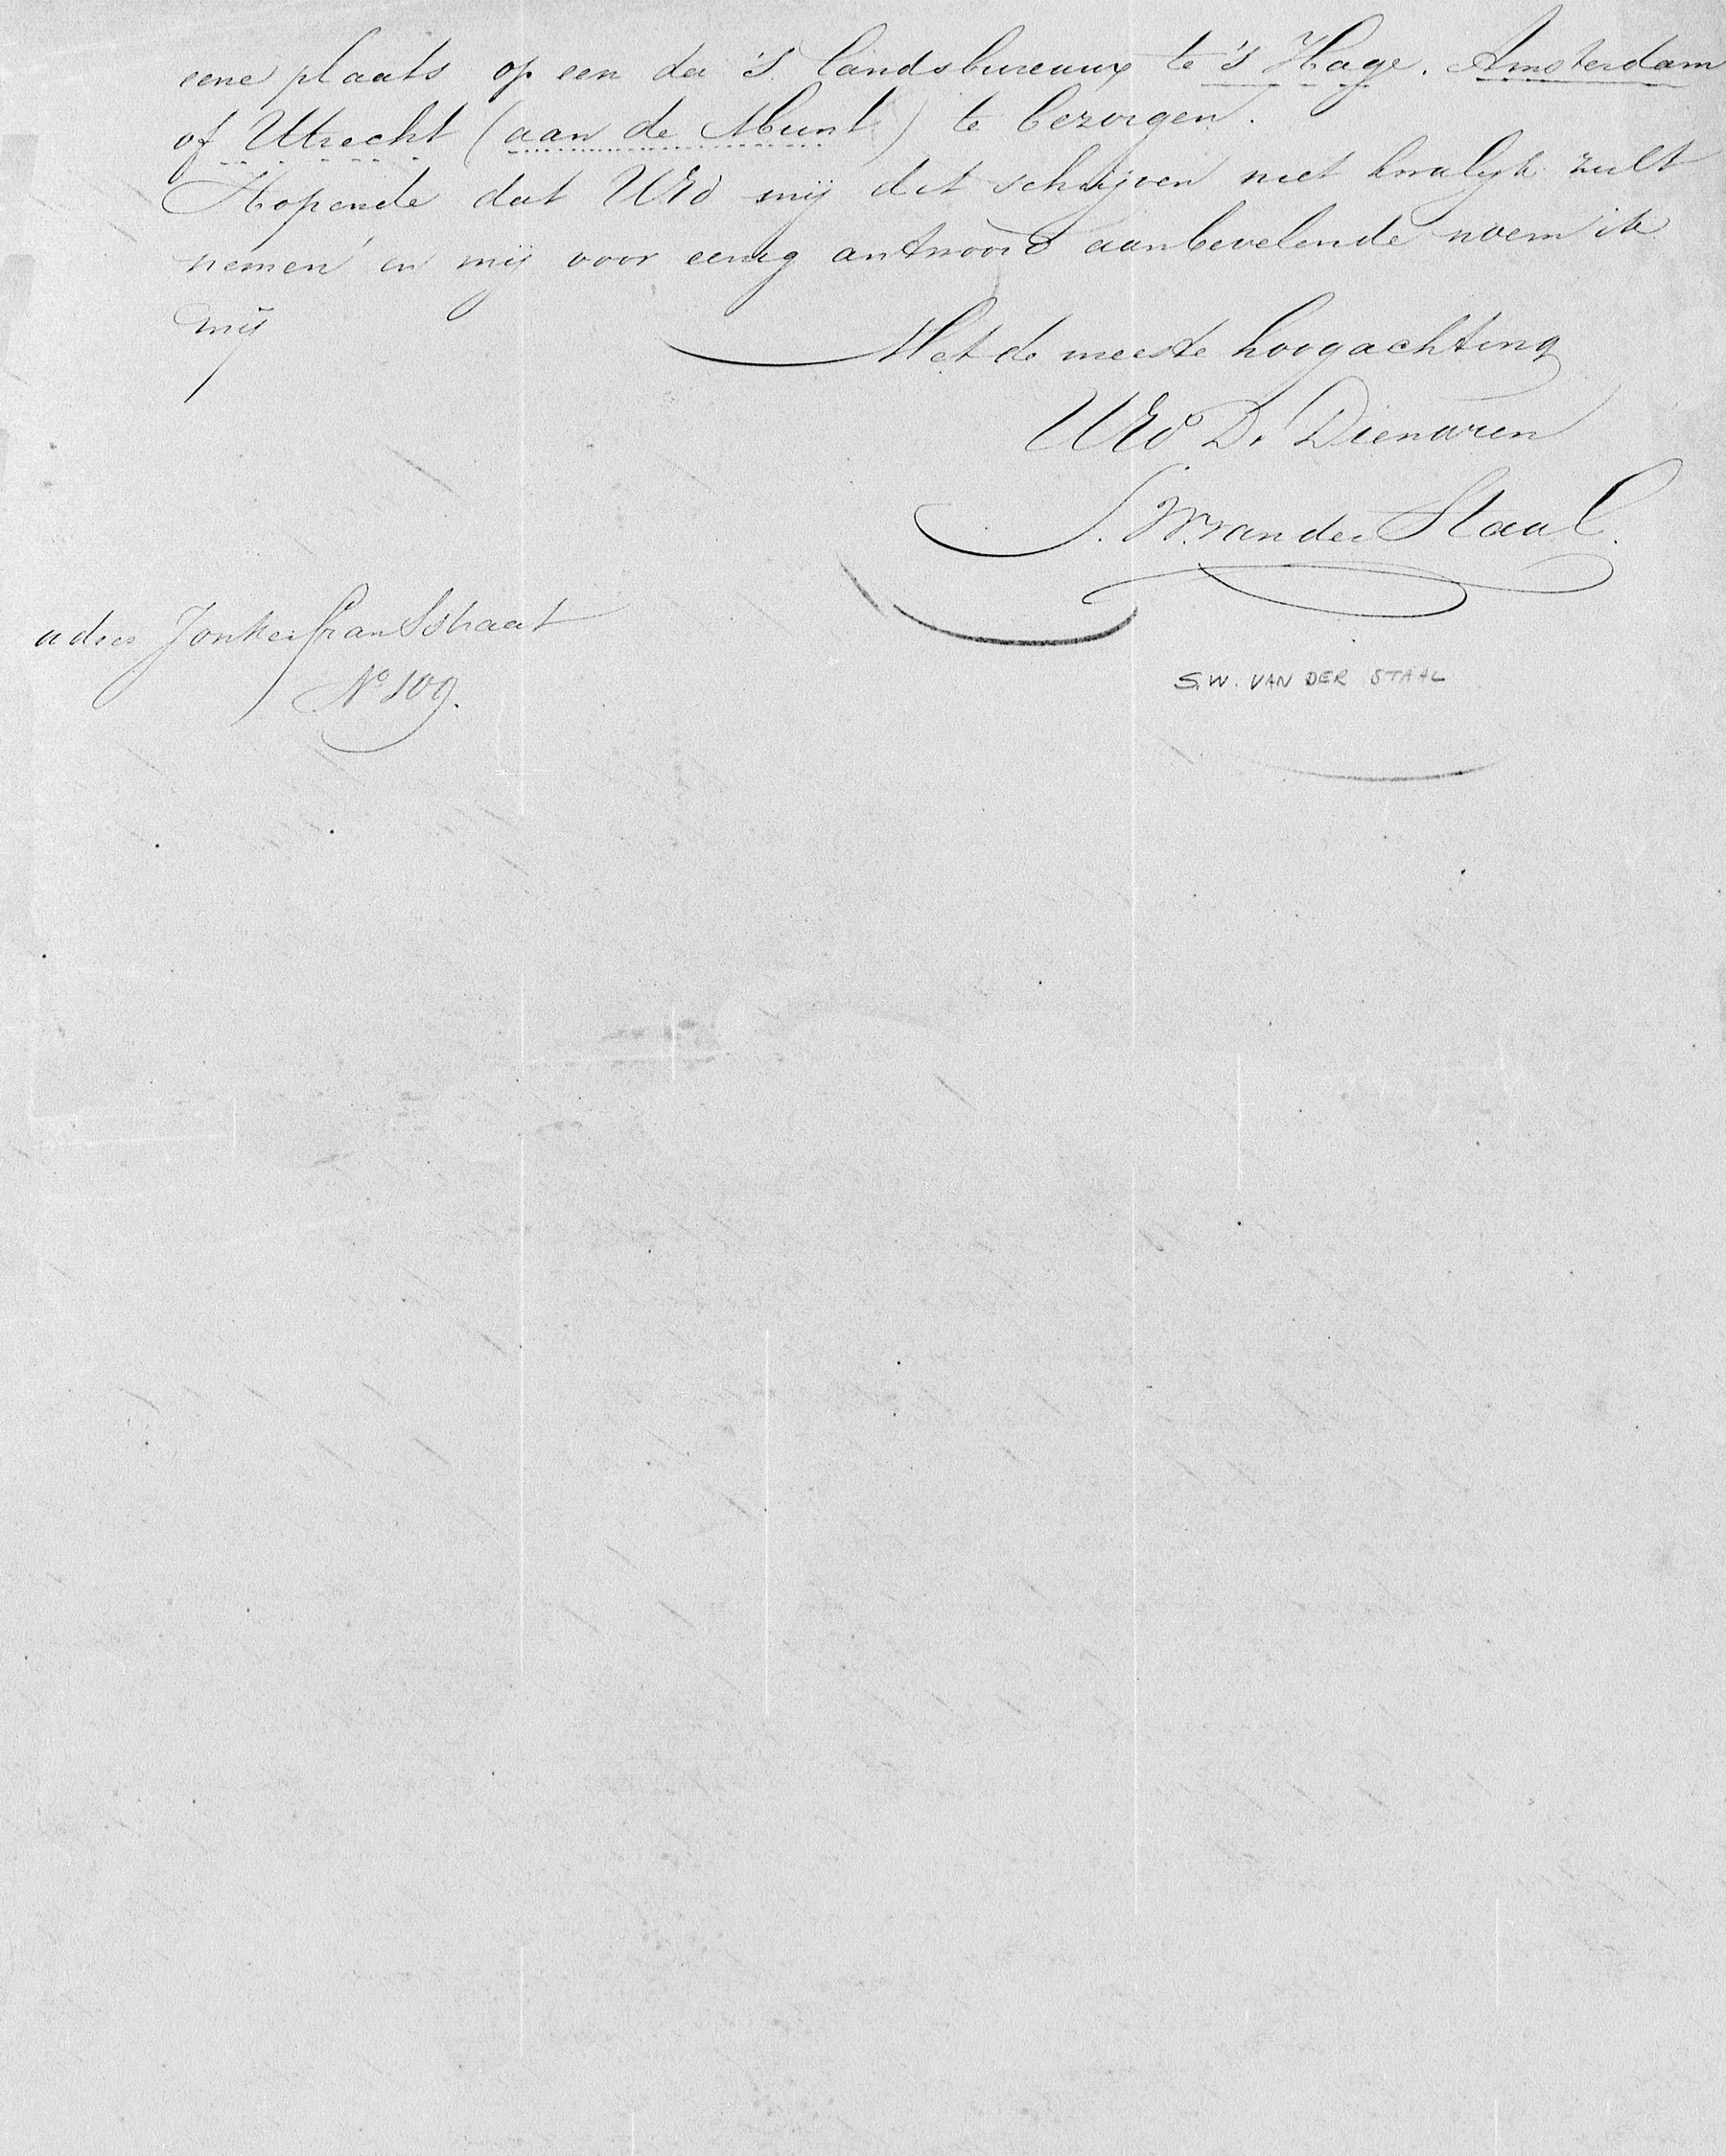 eene plaats op een der 's Landsbureaux te 's Hage. Amsterdam
of Utrecht (aan de Munt) te bezorgen.
Hopende dat UEd mij dit schrijven niet kwalijk zult
nemen en mij voor eenig antwoord aanbevelende noem ik
mij
Met de meeste hoogachting
UEd Dr Dienaren
S. W. van der Staal.
adres Jonker franSstraat
No 109.
S.W. VAN DER STAAL